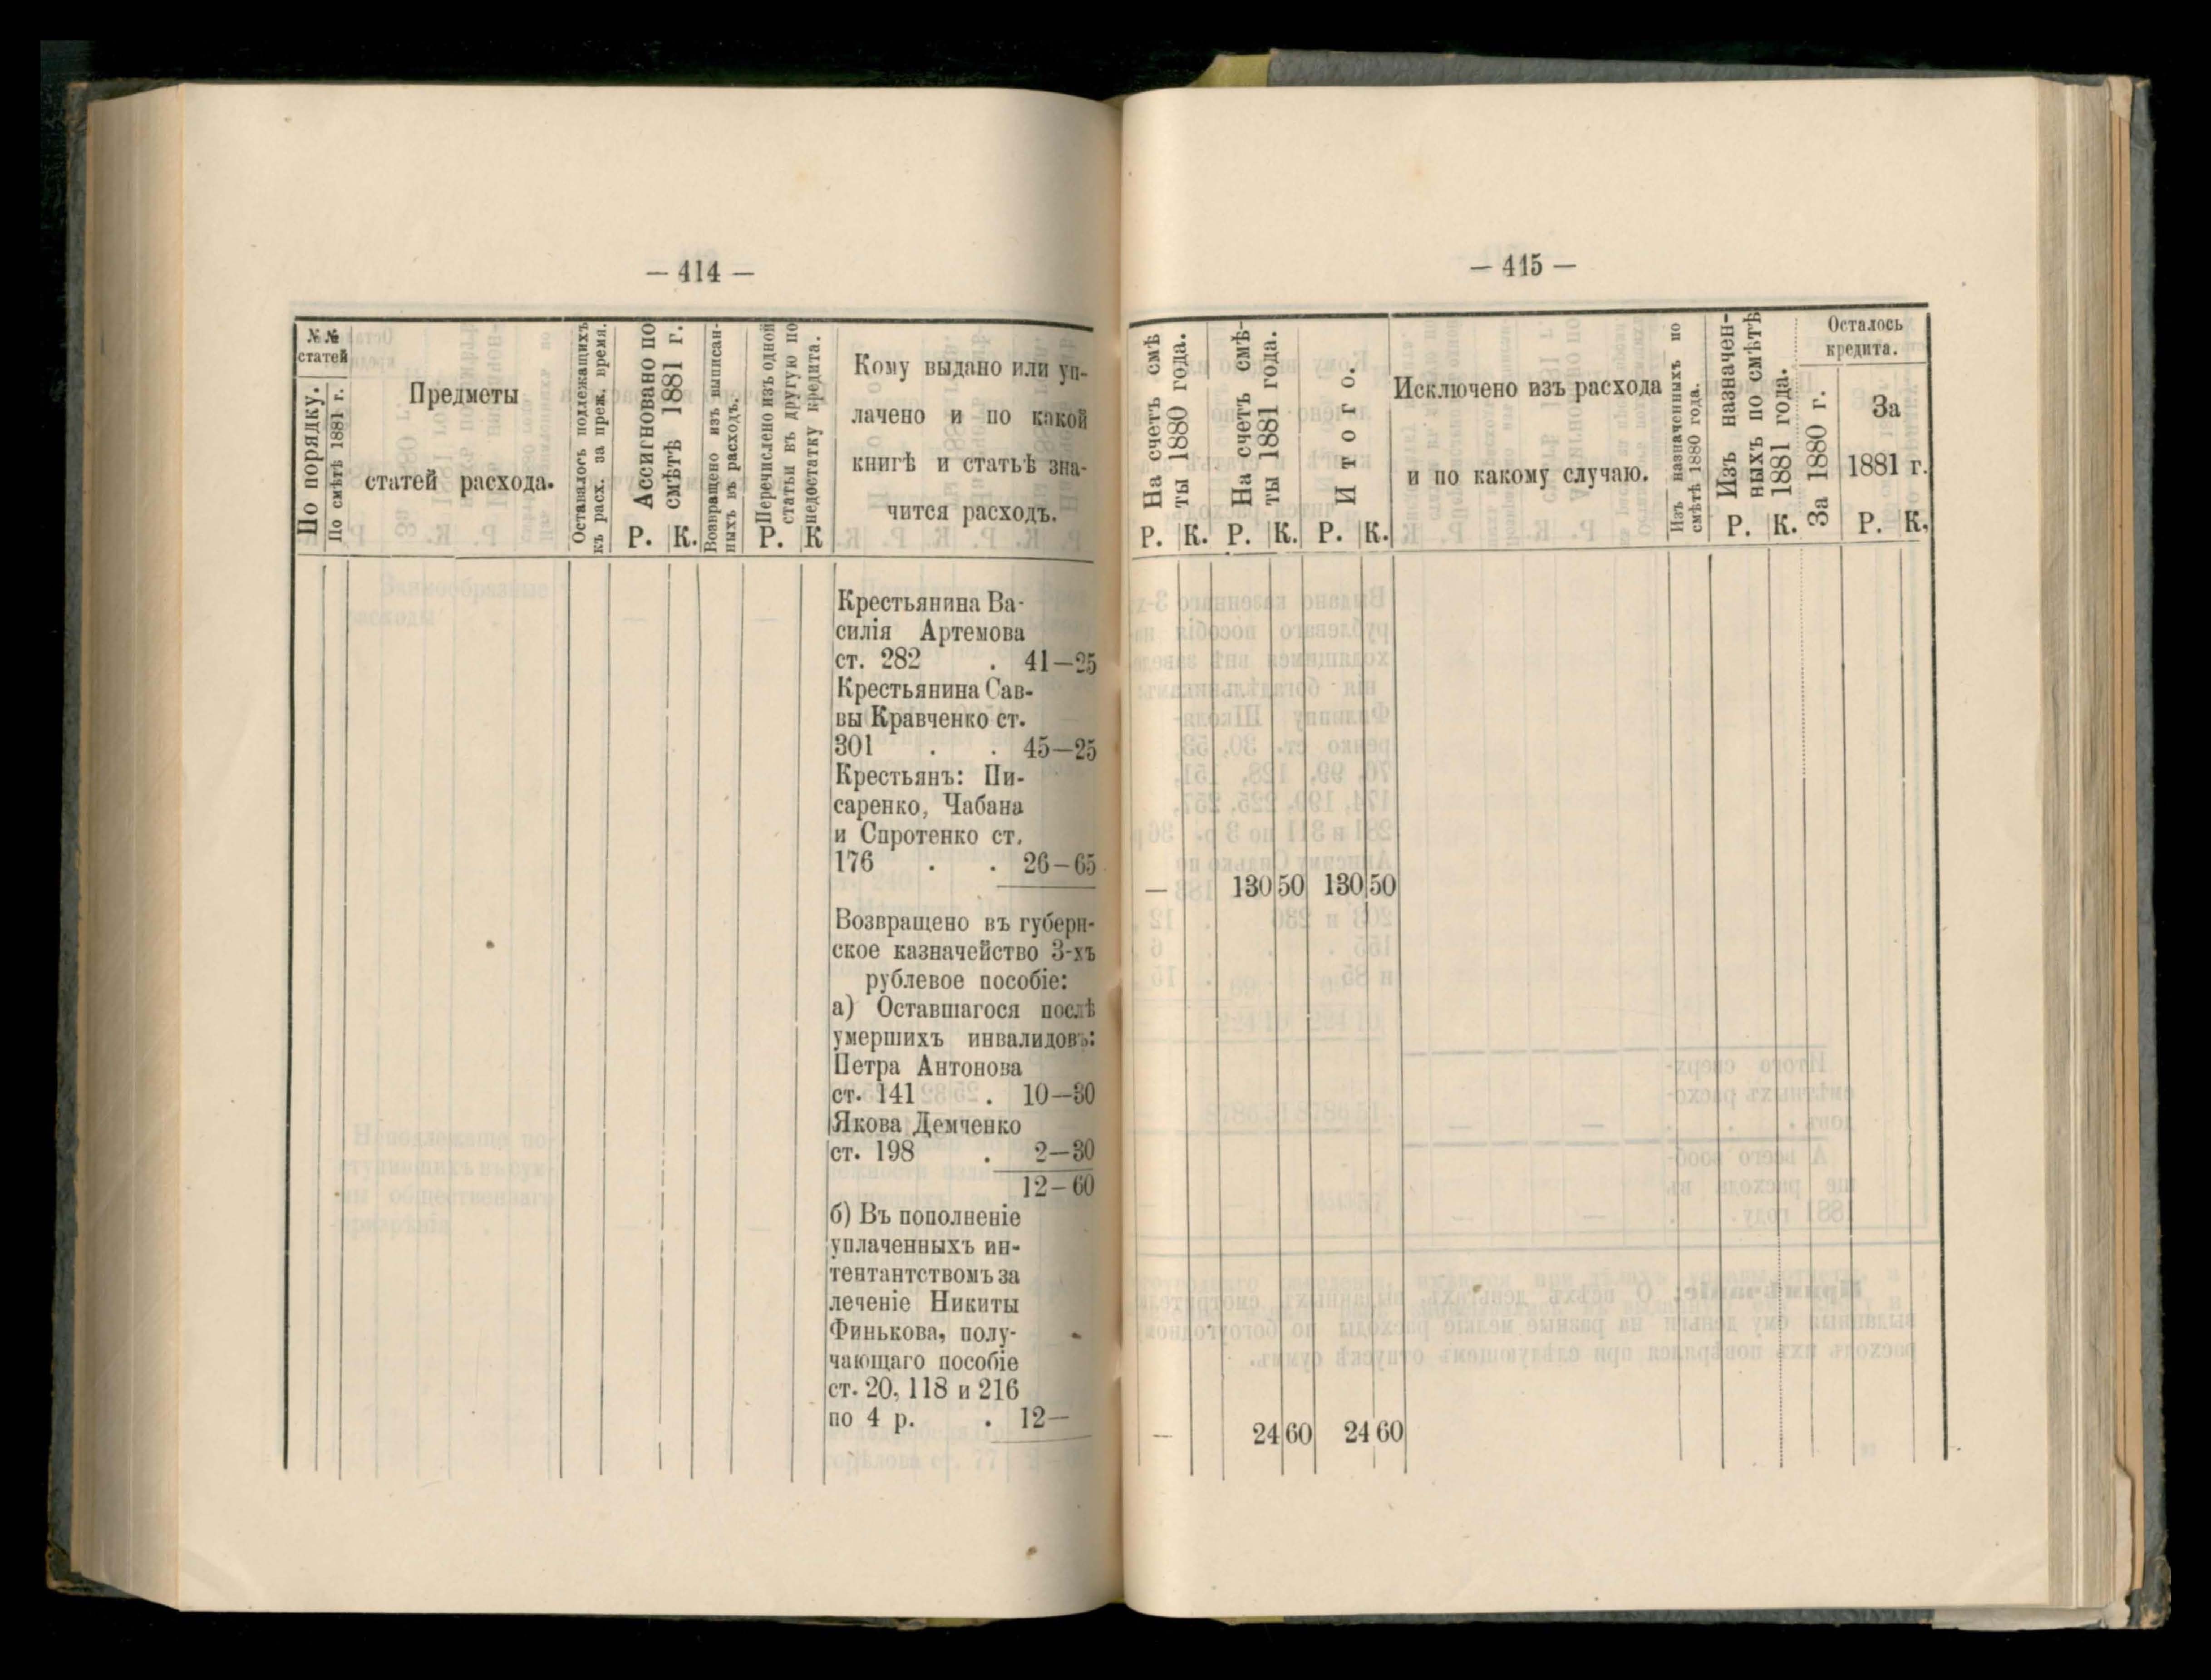 — 414 —
№№
статей
По порядку.
По смѣтѣ 1881 г.
Предметы
статей расхода.
Оставалось подлежащихъ
къ расх. за преж. время.
Ассигновано по
смѣтѣ 1881 г.
Р. К.
Возвращено изъ выписан-
ныхъ въ расходъ.
Перечислено изъ одной
статьи въ другую по
недостатку кредита.
Р. К
Кому выдано или уп-
лачено и по какой
книгѣ и статьѣ зна-
чится расходъ.
Крестьянина Ва-
силія Артемова
ст. 282 . 41—25
Крестьянина Сав-
вы Кравченко ст.
301 . . 45—25
Крестьянъ: Пи-
саренко, Чабана
и Спротенко ст.
176 . . 26—65
Возвращено въ губерн-
ское казначейство 3-хъ
рублевое пособіе:
а) Оставшагося послѣ
умершихъ инвалидовъ:
Петра Антонова
ст. 141 . 10—30
Якова Демченко
ст. 198 . 2—30
12—60
б) Въ пополненіе
уплаченныхъ ин-
тентантствомъ за
леченіе Никиты
Финькова, полу-
чающаго пособіе
ст. 20, 118 и 216
по 4 р. . 12—
— 415 —
На счетъ смѣ
ты 1880 года.
Р. К.
На счетъ смѣ-
ты 1881 года.
Р. К.
Итого.
Р. К.
Исключено изъ расхода
и по какому случаю.
Изъ назначенныхъ по
смѣтѣ 1880 года.
Изъ назначен-
ныхъ по смѣтѣ
1881 года.
Р. К.
Осталось
кредита.
За 1880 г.
За
1881 г.
Р. К.
— 130 50 130 50
— 24 60 24 60